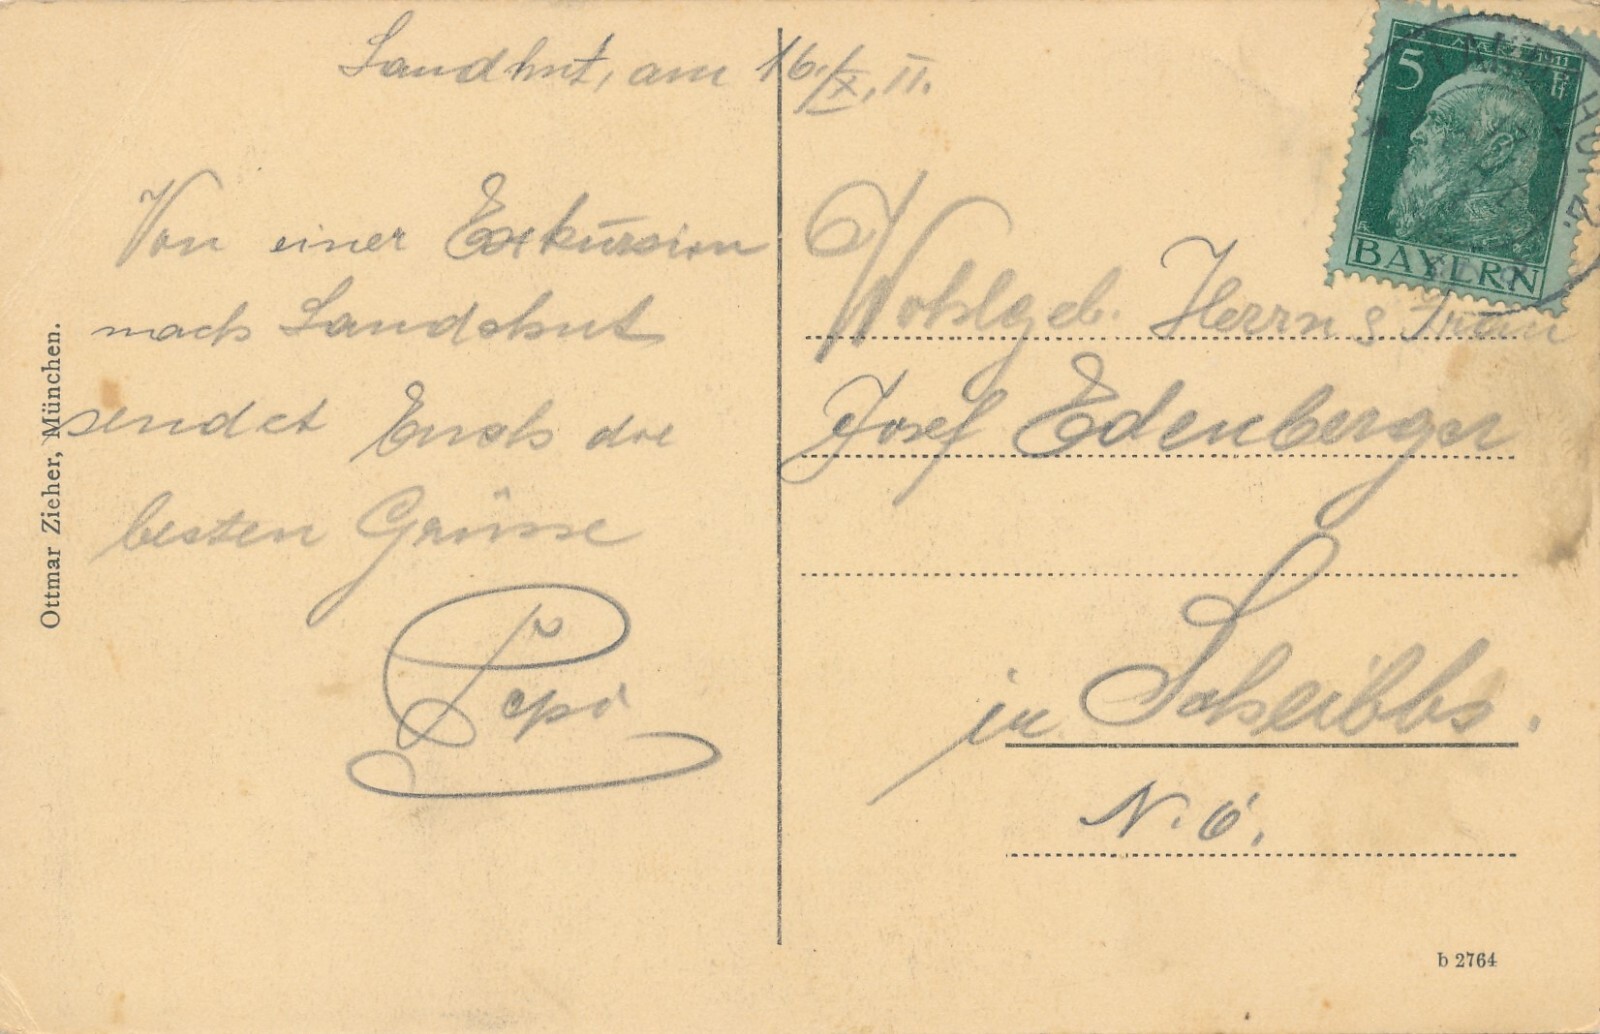 Landshut, am 16./X. 11.
Von einer Exkursion
nach Landshut
sendet Euch die
besten Grüsse
Pepi
Wohlgeb. Herrn & Frau
Josef Edenberger
in Scheibbs.
N.Ö.
5 Pf
1911
BAYERN
Ottmar Zieher, München.
b 2764